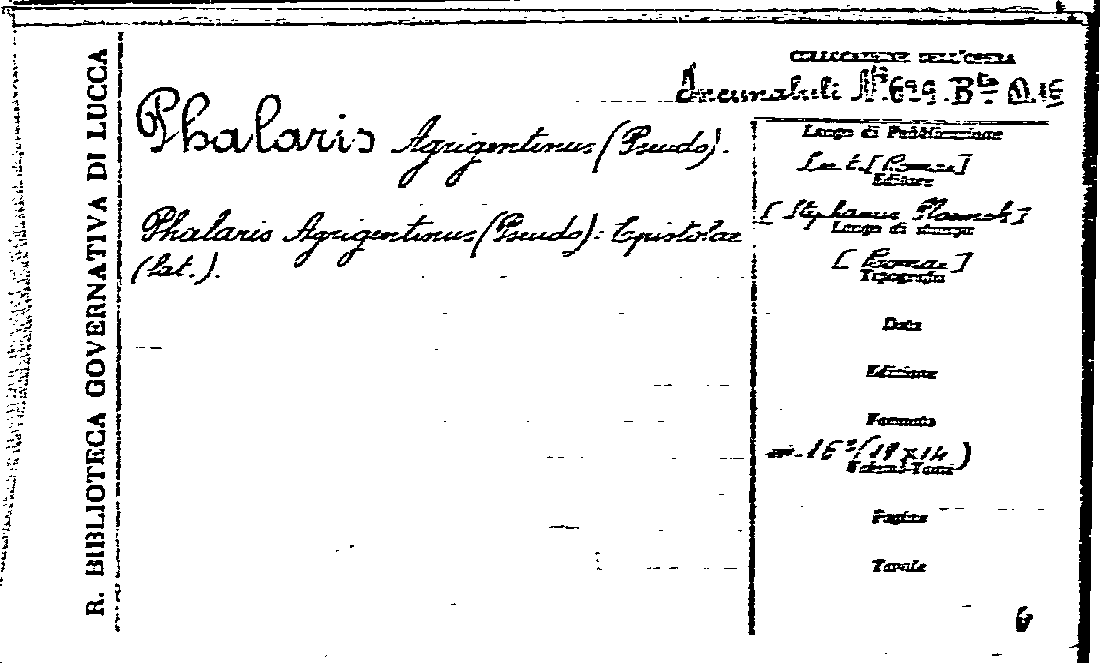 R. BIBLIOTECA GOVERNATIVA DI LUCCA
COLLOCAZIONE DELL'OPERA
Incunabuli N° 699. B
Phalaris Agrigentinus (Pseudo).
Phalaris Agrigentinus (Pseudo): Epistolae
(lat.).
Luogo di Pubblicazione
[Romae]
Editore
[Stephanus Plannck]
Luogo di stampa
[Romae]
Tipografia
Data
Edizione
Formato
in-16° (19 x 14)
Volumi-Tomi
Pagine
Tavole